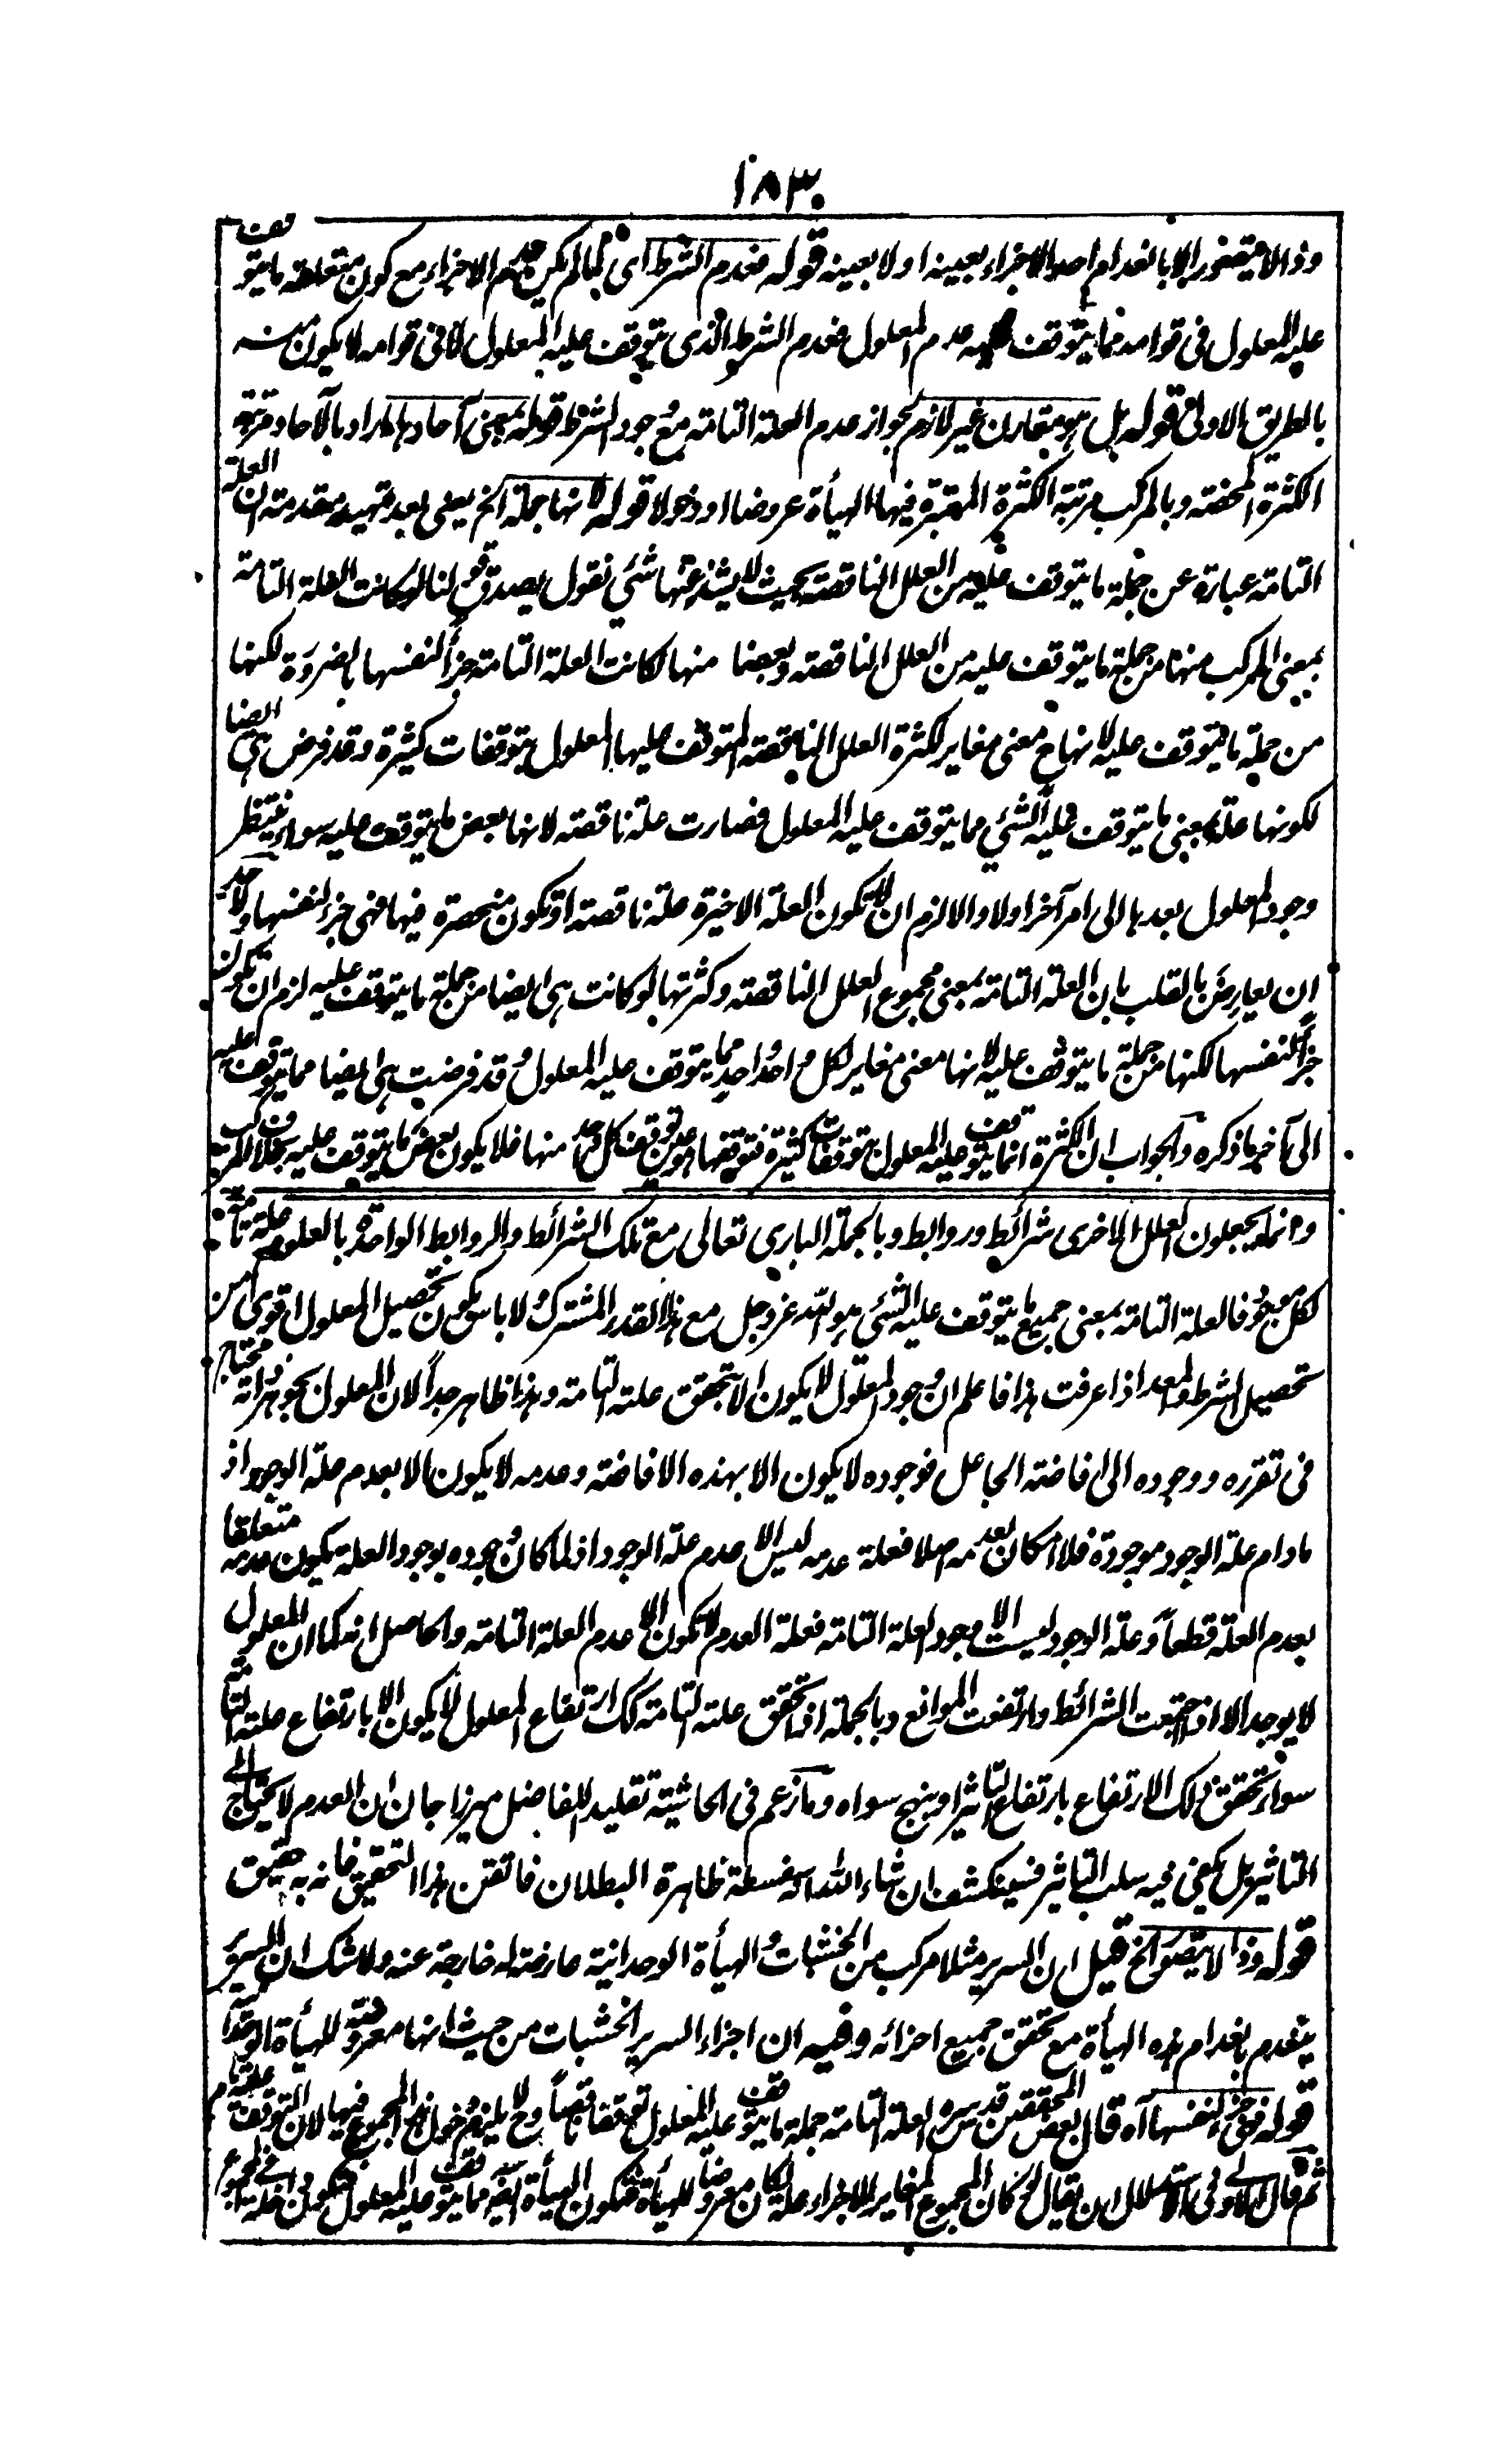 ١٨٣
وذا لا يتصور الا بانعدام احد الاجزاء بعينه اولا بعينه قوله فعدم الشرط اى لما لم يكن عدم الاجزاء مع كون متعلقه ما يتوقف
عليه المعلول فى قوامه مما يتوقف عليه عدم المعلول فعدم الشرط الذى يتوقف عليه المعلول لا فى قوامه لا يكون منه
بالطريق الاولى قوله بل هو مقارن غير لازم لجواز عدم العلة التامة مع وجود الشرط قوله بمعنى آحادها المراد بالآحاد مرتبة
الكثرة المحضة وبالمركب مرتبة الكثرة المعتبرة فيها الهيأة عروضا او دخولا قوله لانها جملة الخ يعنى بعد تمهيد مقدمة ان العلة
التامة عبارة عن جملة ما يتوقف عليه من العلل الناقصة بحيث لا يشذ عنها شئ نقول يصدق قولنا لو كانت العلة التامة
بمعنى المركب منها من جملة ما يتوقف عليه من العلل الناقصة وبعضا منها لكانت العلة التامة جزأ لنفسها بالضرورة لكنها
من جملة ما يتوقف عليه لانها ح معنى مغاير لكثرة العلل الناقصة المتوقف عليها المعلول بتوقفات كثيرة وقد فرض هى ايضا
لكونها علة بمعنى ما يتوقف عليه الشئ مما يتوقف عليه المعلول فصارت علة ناقصة لانها بعض ما يتوقف عليه سواء ينتظر
وجود المعلول بعدها الى امر آخر اولا والا لزم ان لا تكون العلة الاخيرة علة ناقصة او تكون منحصرة فيها فهى جزء لنفسها ولاحد
ان يعارض بالقلب بان العلة التامة بمعنى مجموع العلل الناقصة وكثرتها لو كانت هى ايضا من جملة ما يتوقف عليه لزم ان تكون
جزأ لنفسها لكنها من جملة ما يتوقف عليه لانها معنى مغاير لكل واحد واحد مما يتوقف عليه المعلول وقد فرضت هى ايضا مما يتوقف عليه
الى آخر ما ذكره والجواب ان الكثرة انما يتوقف عليه المعلول بتوقفات كثيرة فتوقفها هو عين توقف كل واحد منها فلا يكون بعض ما يتوقف عليه بخلاف المركب
وانما يجعلون العلل الاخرى شرائط وروابط وبالجملة البارى تعالى مع تلك الشرائط والروابط الواحدة بالعلوم علة تامة
لكل موجود فالعلة التامة بمعنى جميع ما يتوقف عليه الشئ هو الله عز وجل مع هذا القدر المشترك ولا باس بكون تحصيل المعلول اقوى من
تحصيل الشرط والمعد اذا عرفت هذا فاعلم ان وجود المعلول لا يكون الا بتحقق علته التامة وهذا ظاهر جداً لان المعلول بجوهر ذاته محتاج
فى تقرره ووجوده الى افاضة الجاعل فوجوده لا يكون الا بهذه الافاضة وعدمه لا يكون الا بعدم علة الوجود اذ
مادام علة الوجود موجودة فلا امكان لعدمه اصلا فعلة عدمه ليس الا عدم علة الوجود اذ لما كان وجوده بوجود العلة يكون عدمه متعلقا
بعدم العلة قطعاً وعلة الوجود ليست الا وجود العلة التامة فعلة العدم لا تكون الا عدم العلة التامة والحاصل انه كما ان المعلول
لا يوجد الا اذا اجتمعت الشرائط وارتفعت الموانع وبالجملة اذا تحقق علته التامة كك ارتفاع المعلول لا يكون الا بارتفاع علته التامة
سواء تحقق ذلك الارتفاع بارتفاع التاثير او بنهج سواه وما زعم فى الحاشية تقليدا للفاضل ميرزاجان ان العدم لا يحتاج الى
التاثير بل يكفى فيه سلب التاثير فسينكشف ان شاء الله انه سفسطة ظاهرة البطلان فاتقن هذا التحقيق فانه به حقيق
قوله وذا لا يتصور الخ قيل ان السرير مثلا مركب من الخشبات والهيأة الوحدانية عارضة له خارجة عنه ولا شك ان السرير
ينعدم بانعدام هذه الهيأة مع تحقق جميع اجزائه وفيه ان اجزاء السرير الخشبات من حيث انها معروضة للهيأة الوحدانية
قوله فهى جزء لنفسها آه قال بعض المحققين قدس سره العلة التامة جملة ما يتوقف عليه المعلول توقفا ناقصاً وح لا يلزم دخول المجموع فيها لان التوقف عليه تام
ثم قال الاولى فى الاستدلال ان يقال لو كان المجموع المغاير للاجزاء علة لكان معروضا للهيأة فتكون الهيأة ايضا مما يتوقف عليه المعلول فتكون داخلة فى المجموع